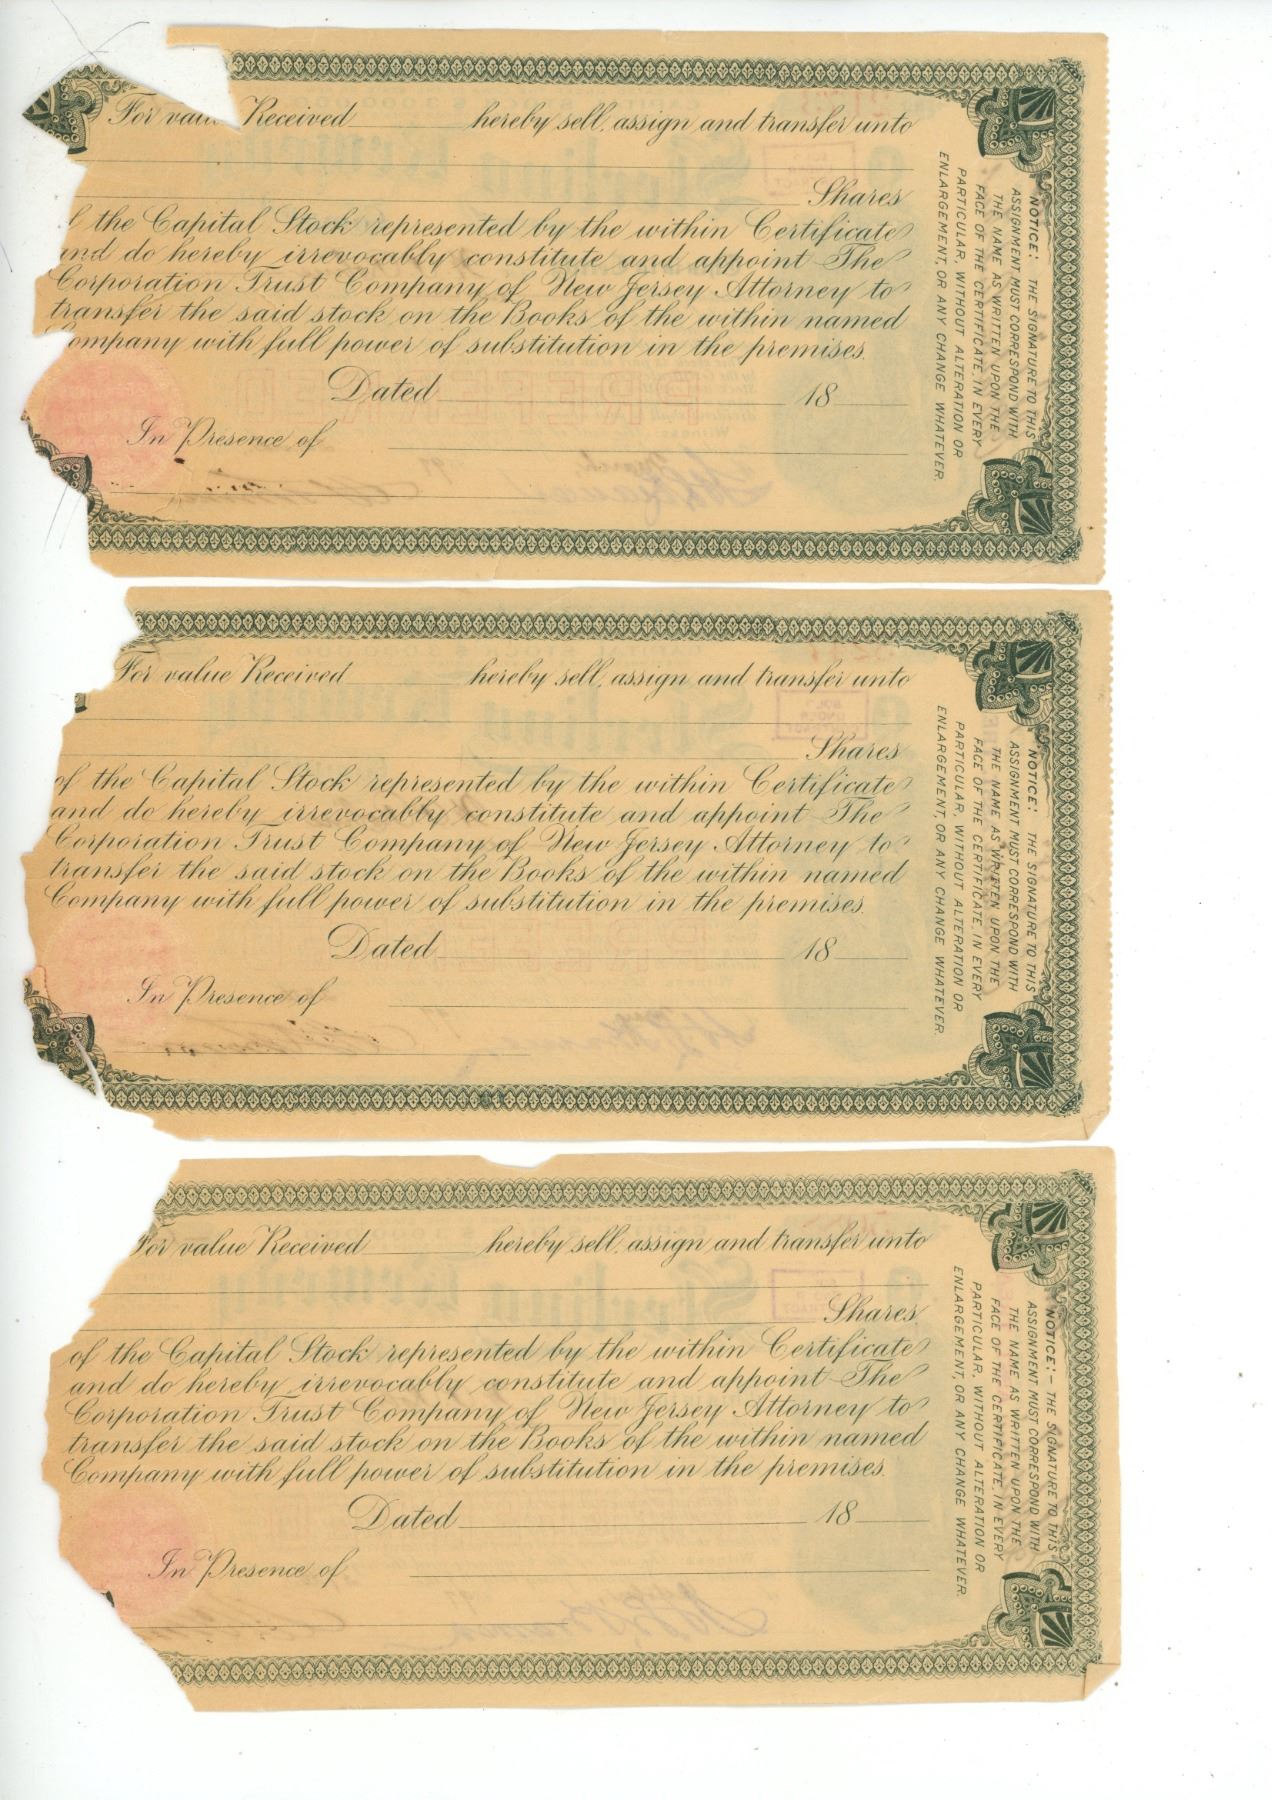 For Received hereby sell, assign and transfer unto
Shares
the Capital Stock represented by the within Certificate
and do hereby irrevocably constitute and appoint The
Corporation Trust Company of New Jersey Attorney to
transfer the said stock on the Books of the within named
Company with full power of substitution in the premises.
Dated 18
In Presence of
NOTICE: THE SIGNATURE TO THIS
ASSIGNMENT MUST CORRESPOND WITH
THE NAME AS WRITTEN UPON THE
FACE OF THE CERTIFICATE, IN EVERY
PARTICULAR, WITHOUT ALTERATION OR
ENLARGEMENT, OR ANY CHANGE WHATEVER.
For value Received hereby sell, assign and transfer unto
Shares
of the Capital Stock represented by the within Certificate
and do hereby irrevocably constitute and appoint The
Corporation Trust Company of New Jersey Attorney to
transfer the said stock on the Books of the within named
Company with full power of substitution in the premises.
Dated 18
In Presence of
NOTICE: THE SIGNATURE TO THIS
ASSIGNMENT MUST CORRESPOND WITH
THE NAME AS WRITTEN UPON THE
FACE OF THE CERTIFICATE, IN EVERY
PARTICULAR, WITHOUT ALTERATION OR
ENLARGEMENT, OR ANY CHANGE WHATEVER.
For value Received hereby sell, assign and transfer unto
Shares
of the Capital Stock represented by the within Certificate
and do hereby irrevocably constitute and appoint The
Corporation Trust Company of New Jersey Attorney to
transfer the said stock on the Books of the within named
Company with full power of substitution in the premises.
Dated 18
In Presence of
NOTICE:- THE SIGNATURE TO THIS
ASSIGNMENT MUST CORRESPOND WITH
THE NAME AS WRITTEN UPON THE
FACE OF THE CERTIFICATE, IN EVERY
PARTICULAR, WITHOUT ALTERATION OR
ENLARGEMENT, OR ANY CHANGE WHATEVER.